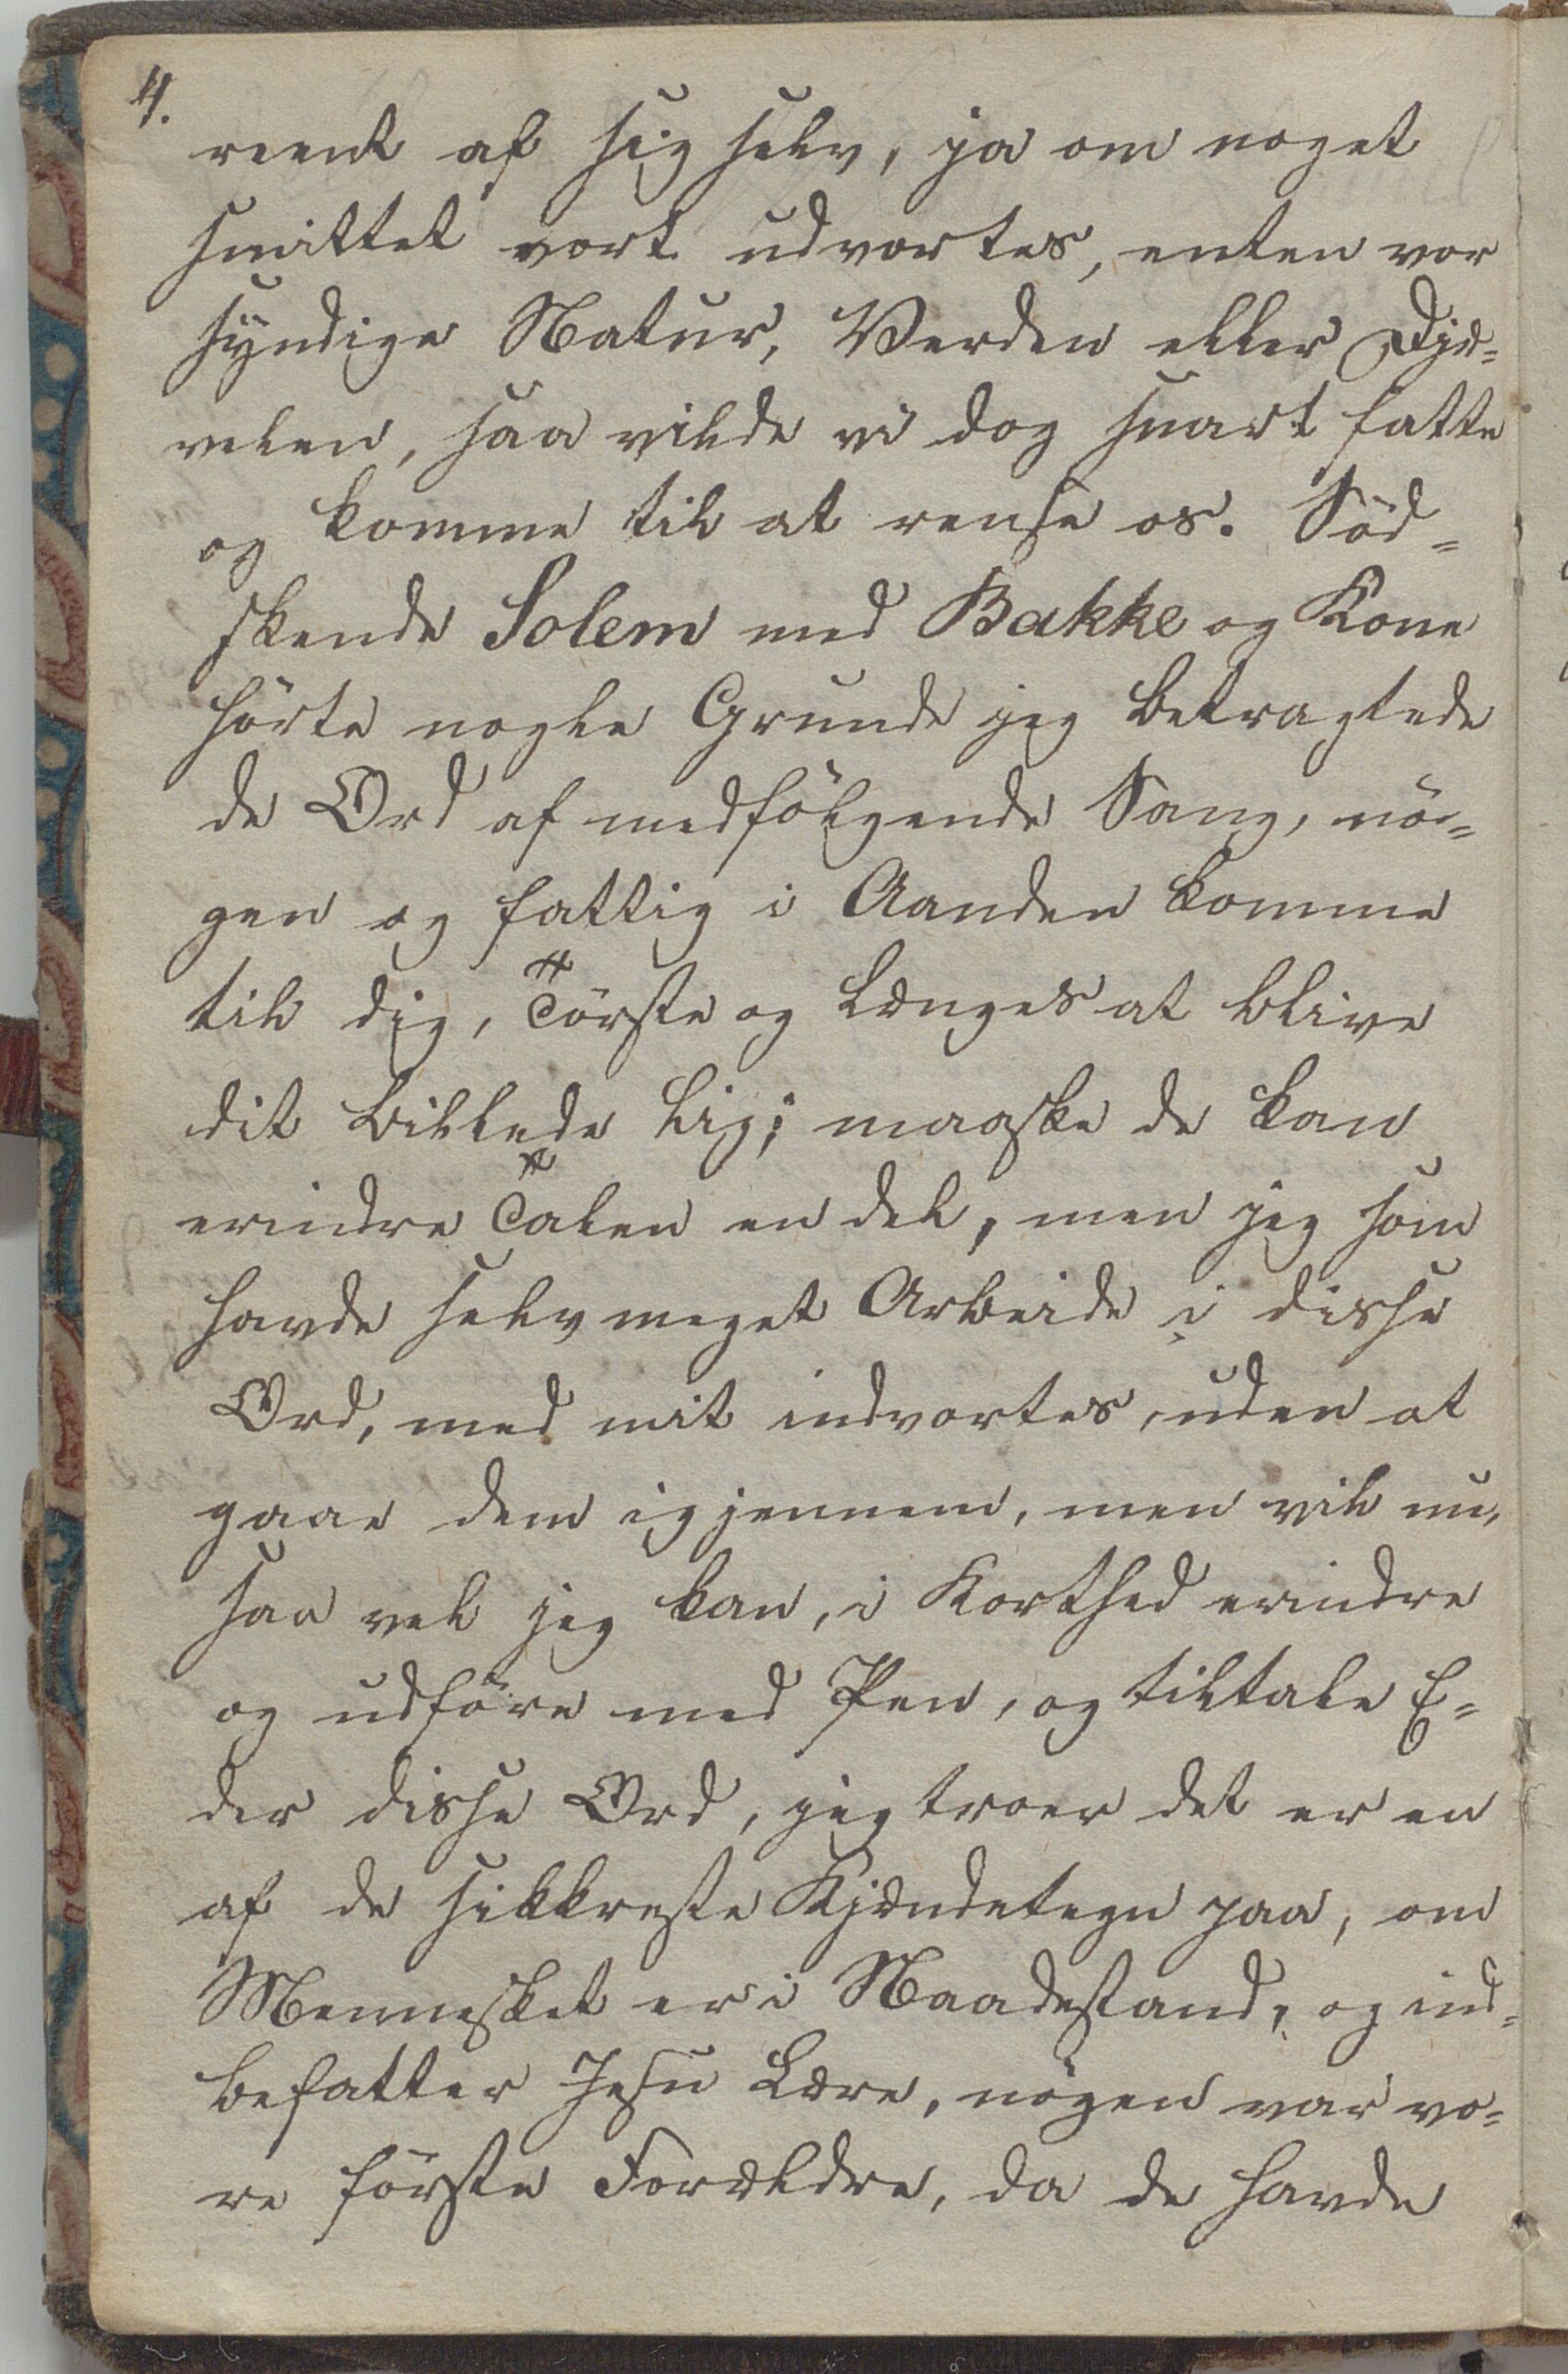 4.
reent af sig selv, ja om noget
smittet vort udvortes, enten vor
syndige Natur, Verden eller Djæ=
velen, saa vilde vi dog snart fatte
og komme til at rense os. Sød=
skende Solem med Bakke og Kone
hørte nogle Grunde jeg betragtede
de Ord af medfølgende Sang, nö=
gen og fattig i Aanden komme
til dig, Törste og længes at blive
dit billede lig; maaske de kan
erindre Talen en del, men jeg som
havde selv meget Arbeide i disse
Ord, med mit indvortes, uden at
gaae dem igjennem, men vil nu,
saa vel jeg kan, i Korthed erindre
og udföre med Pen, og tiltale E=
der disse Ord, jeg troer det er en
af de sikkreste Kjændetegn paa, om
Mennesket er i Naadestand, og ind=
befatter Jesu Lære, nögen var vo=
re förste Forældre, da de havde